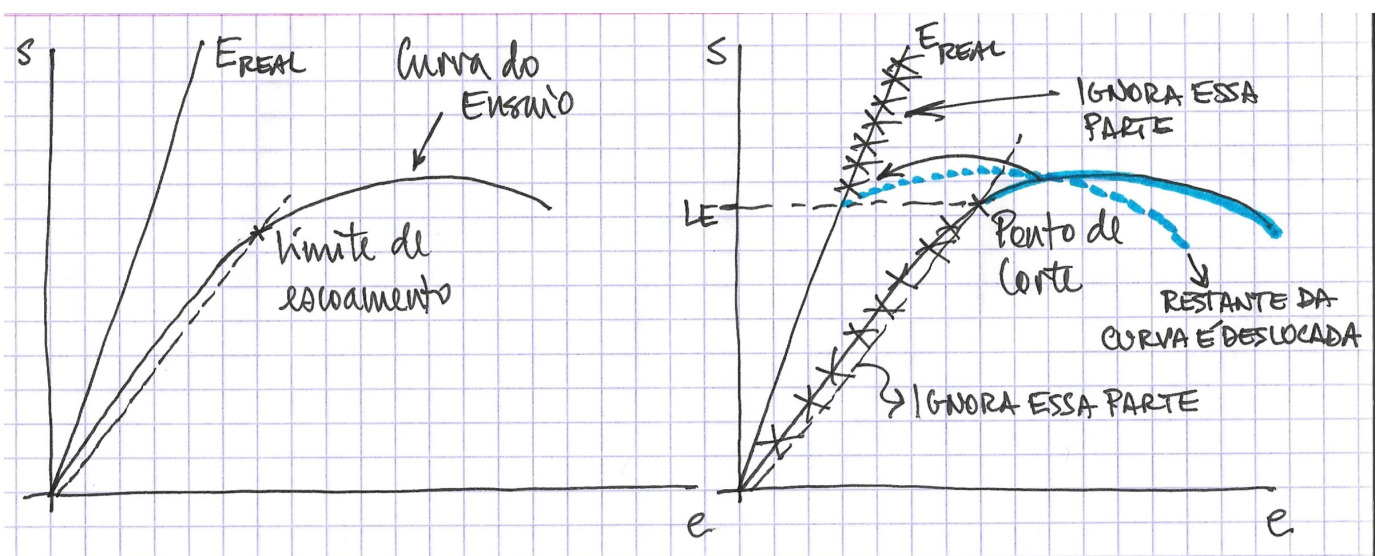 S
EREAL
Curva do
Ensaio
Limite de
escoamento
e
S
EREAL
IGNORA ESSA
PARTE
LE
Ponto de
Corte
RESTANTE DA
CURVA É DESLOCADA
IGNORA ESSA PARTE
e